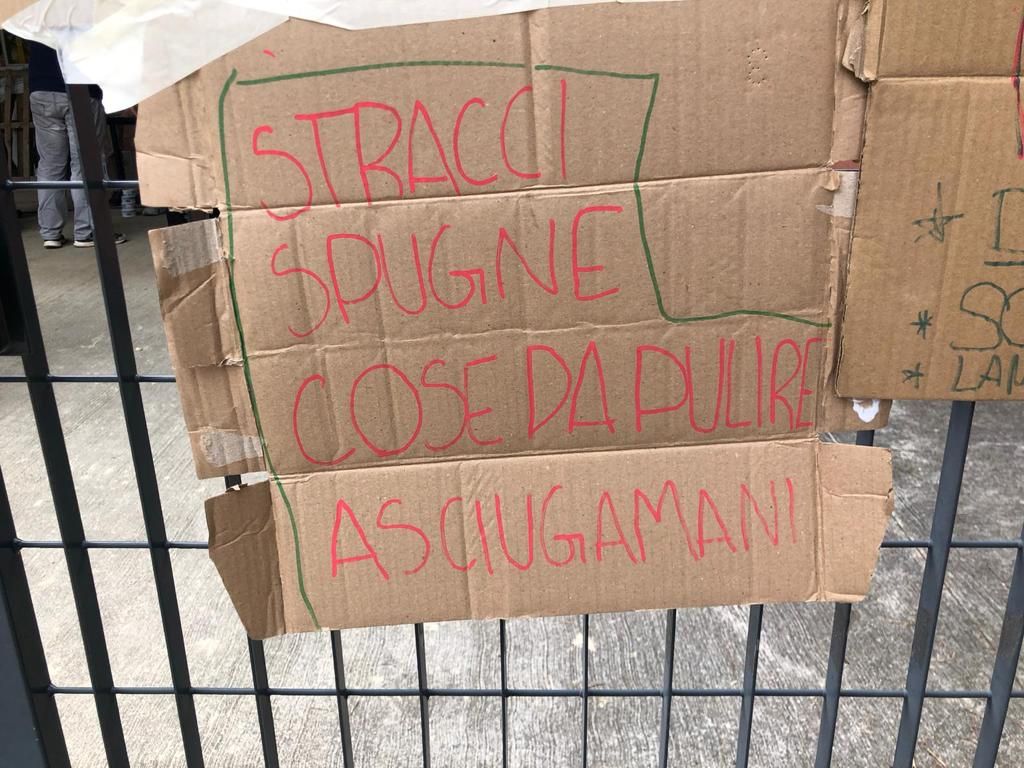 STRACCI
SPUGNE
COSE DA PULIRE
ASCIUGAMANI